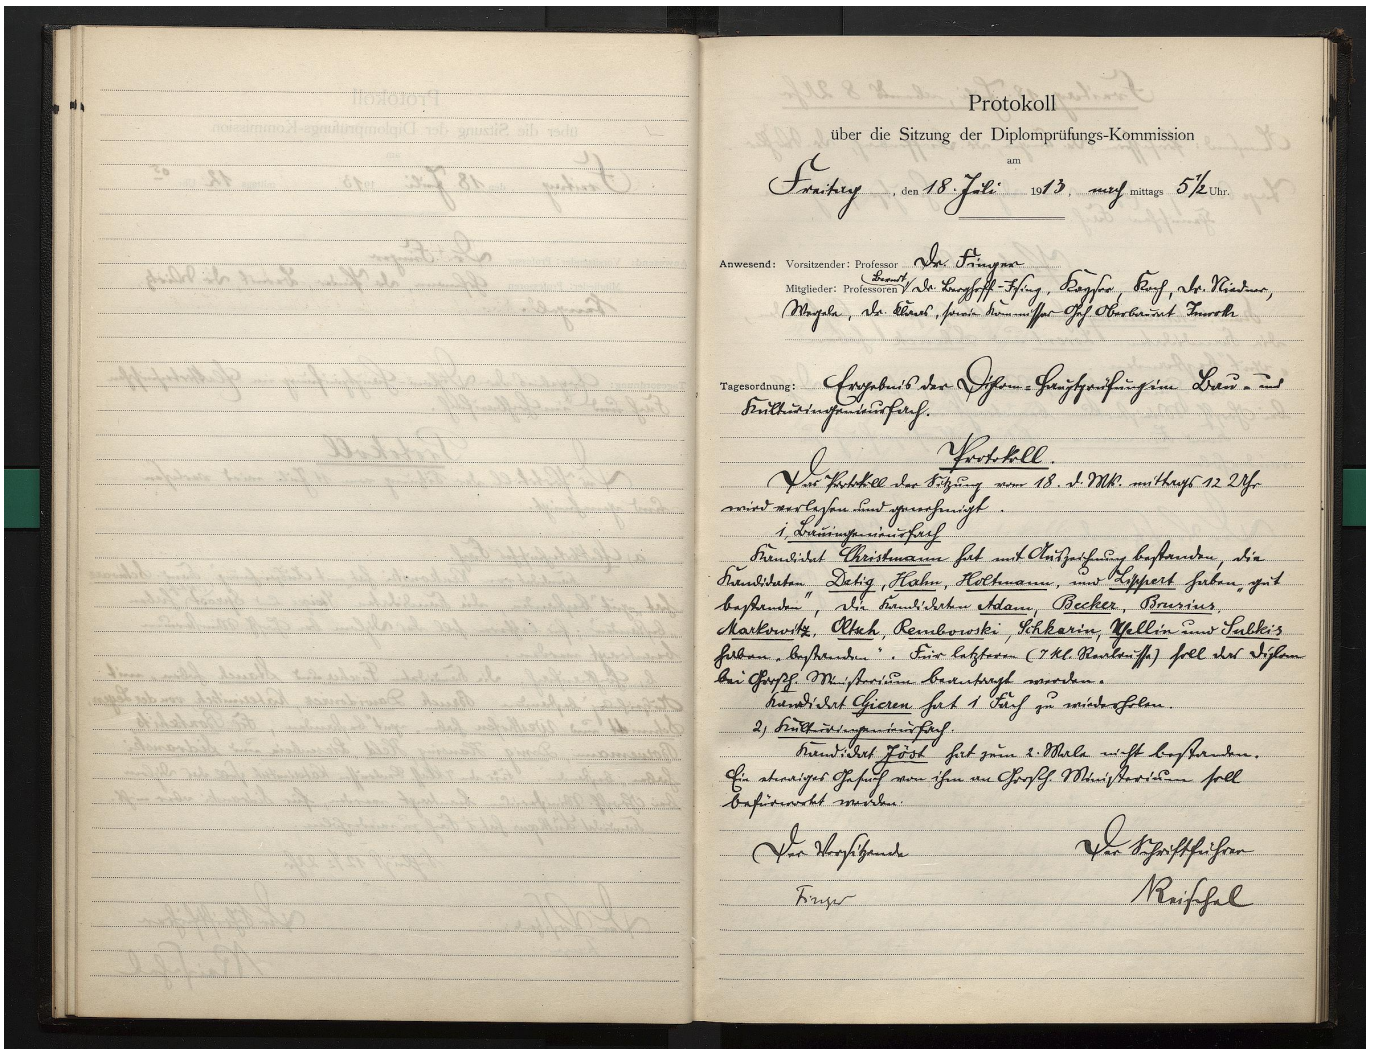 Protokoll
über die Sitzung der Diplomprüfungs-Kommission
am
Freitag, den 18. Juli 1913, nachmittags 5 1/2 Uhr.
Anwesend: Vorsitzender: Professor Dr. Finger
Berndt
Mitglieder: Professoren Dr. Berghoff-Ising, Kayser, Koch, Dr. Niedner,
Wegele, Dr. Klaas, sowie Kommissar Geh Oberbaurat Imroth
Tagesordnung: Ergebnis der Diplom-Hauptprüfung im Bau- und
Kulturingenieurfach.
Protokoll.
Das Protokoll der Sitzung vom 18. d. Mts. mittags 12 Uhr
wird verlesen und genehmigt.
1, Bauingenieurfach
Kandidat Christmann hat mit Auszeichnung bestanden, die
Kandidaten Detig, Hahn, Holtmann, und Lippert haben „gut
bestanden", die Kandidaten Adam, Becker, Brusius,
Markowitz, Oltsch, Rembowski, Schkarin, Yellin und Sulkis
haben „bestanden". Für letzteren (7 kl. Realrusse) soll das Diplom
bei Grossh. Ministerium beantragt werden.
Kandidat Gieren hat 1 Fach zu wiederholen.
2, Kulturingenieurfach.
Kandidat Jöst hat zum 2. Male nicht bestanden.
Ein etwaiges Gesuch von ihm an Grossh. Ministerium soll
befürwortet werden.
Der Vorsitzende Der Schriftführer
Finger Reischel